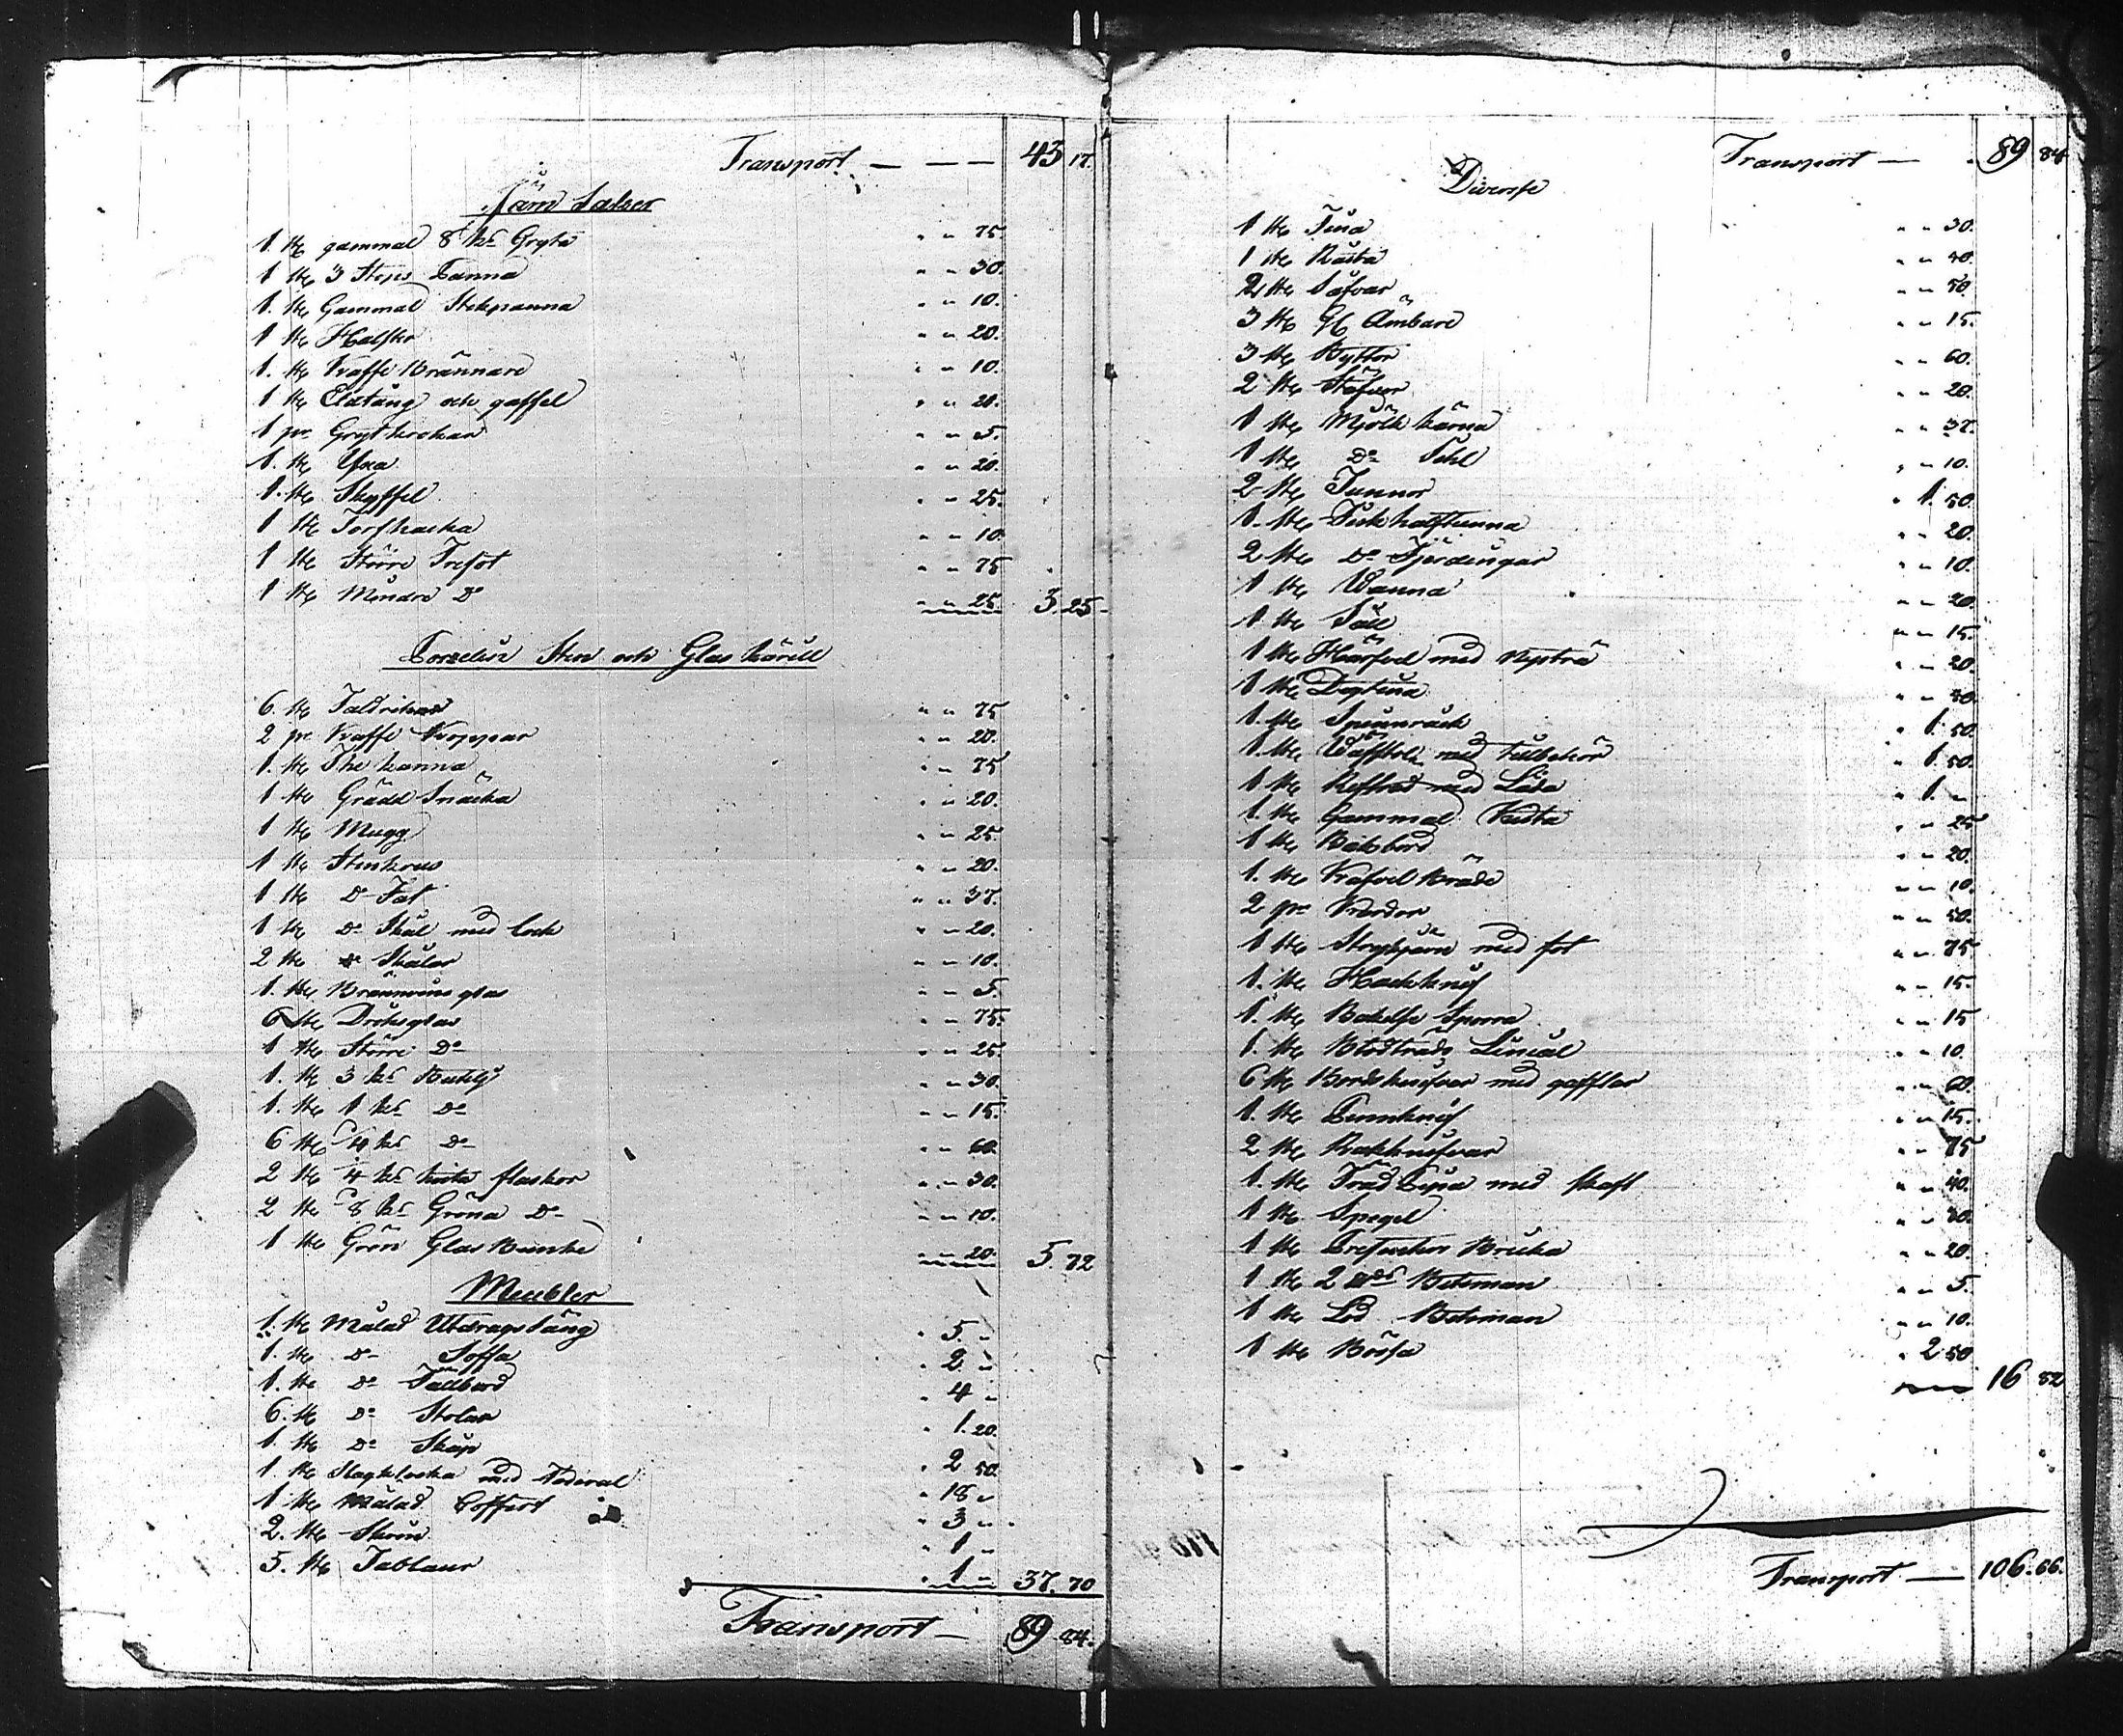 Transport — — — 43 17.
Järn Saker
1. st. gammal 8 kr Gryta " " 75.
1 st. 3 Stops Panna " " 30.
1. st. Gammal Stekpanna " " 10.
1 st. Halster " " 20.
1. st. Kaffe Brännare " " 10.
1 st. Eldtång och gaffel " " 20.
1 pr Grytkrokar " " 5.
1. st. Yxa " " 20.
1. st. Skyffel " " 25.
1 st. Torfhacka " " 10.
1 st. Större Trefot " " 75
1 st. Mindre Do " " 25. 3. 25 -
Porselin Sten och Glas kärill
6. st. Taldrikar " " 75
2 pr Kaffe Koppar " " 20.
1. st. The kanna " " 75
1 st. Grädd Snäcka " " 20.
1 st. Mugg " " 25.
1 st. Stenkrus " " 20.
1 st. Do Fat " " 37.
1 st. Do Skål med lock " " 20.
2 st. Do Skålar " " 10.
1. st. Brännvins glas " " 5.
6 st. Dricksglas " " 75.
1 st. Större Do " " 25.
1. st. 3 kr Butelj " " 30.
1. st. 1 kr Do " " 15.
6 st. 1/4 kr Do " " 60.
2 st. 1/4 kr hvita flaskor " " 30.
2 st. 1/8 kr Gröna Do " " 10.
1 st. Grön Glas Bunke " " 20. 5. 72
Meubler
1. st. Målad Utdrags Säng " 5. "
1. st. Do Soffa " 2 "
1. st. Do Fällbord " 4 "
6. st. Do Stolar " 1. 20.
1. st. Do Skåp " 2 50.
1. st. Slagklocka med Foderal " 18 "
1 st. Målad Coffert " 3 "
2. st. Skrin " 1 "
5. st. Tablaur " 1 " 37. 70
Transport — 89. 84.
Transport — 89 84
Diverse
1 st. Tina " " 30.
1 st. " " 40.
2 st. Såfvar " " 50.
3 st. Ämbare " " 15.
3 st. Byttor " " 60.
2 st. Stäfvor " " 20.
1 st. Mjölk kärna " " 37.
1 st. Do Sihl " " 10.
2 st. Tunnor " 1. 50.
1. st. halftunna " " 20.
2 st. Do Fjerdingar " " 10.
1 st. Wanna " " 20.
1 st. Såll " " 15.
1 st. Härfvel med Nysträ " " 20.
1 st. Degtina " "
1. st. Spinnråck " 1. 50.
1. st. Wäfstol med tillbehör " 1. 50.
1 st. med Låda " 1. "
1. st. Gammal Kista " " 25
1 st. Bakbord " " 20.
1. st. Kafvel Bräde " " 10.
2 pr Kardor " " 50.
1 st. Strykjärn med fot " " 75
1. st. Hackknif " " 15.
1. st. Bakelse Sporre " " 15
1. st. Linial " " 10.
6 st. Bordsknifvar med gafflar " " 60
1. st. Pennknif " " 15.
2 st. Rakknifvar " " 75
1. st. Träd Pipa med skaft " " 40.
1 st. Spegel " " 30.
1 st. " " 20.
1 st. 2 Betsman " " 5.
1 st. Betsman " " 10.
1 st. Bössa " 2. 50
16 82
Transport — 106. 66.